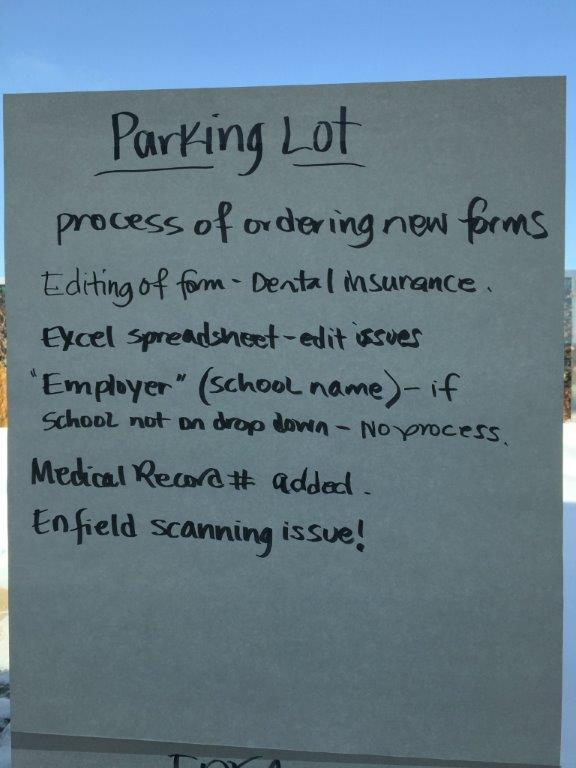 Parking Lot
process of ordering new forms
Editing of form - Dental insurance.
Excel spreadsheet - edit issues
"Employer" (school name) - if
school not on drop down - No process.
Medical Record # added.
Enfield scanning issue!